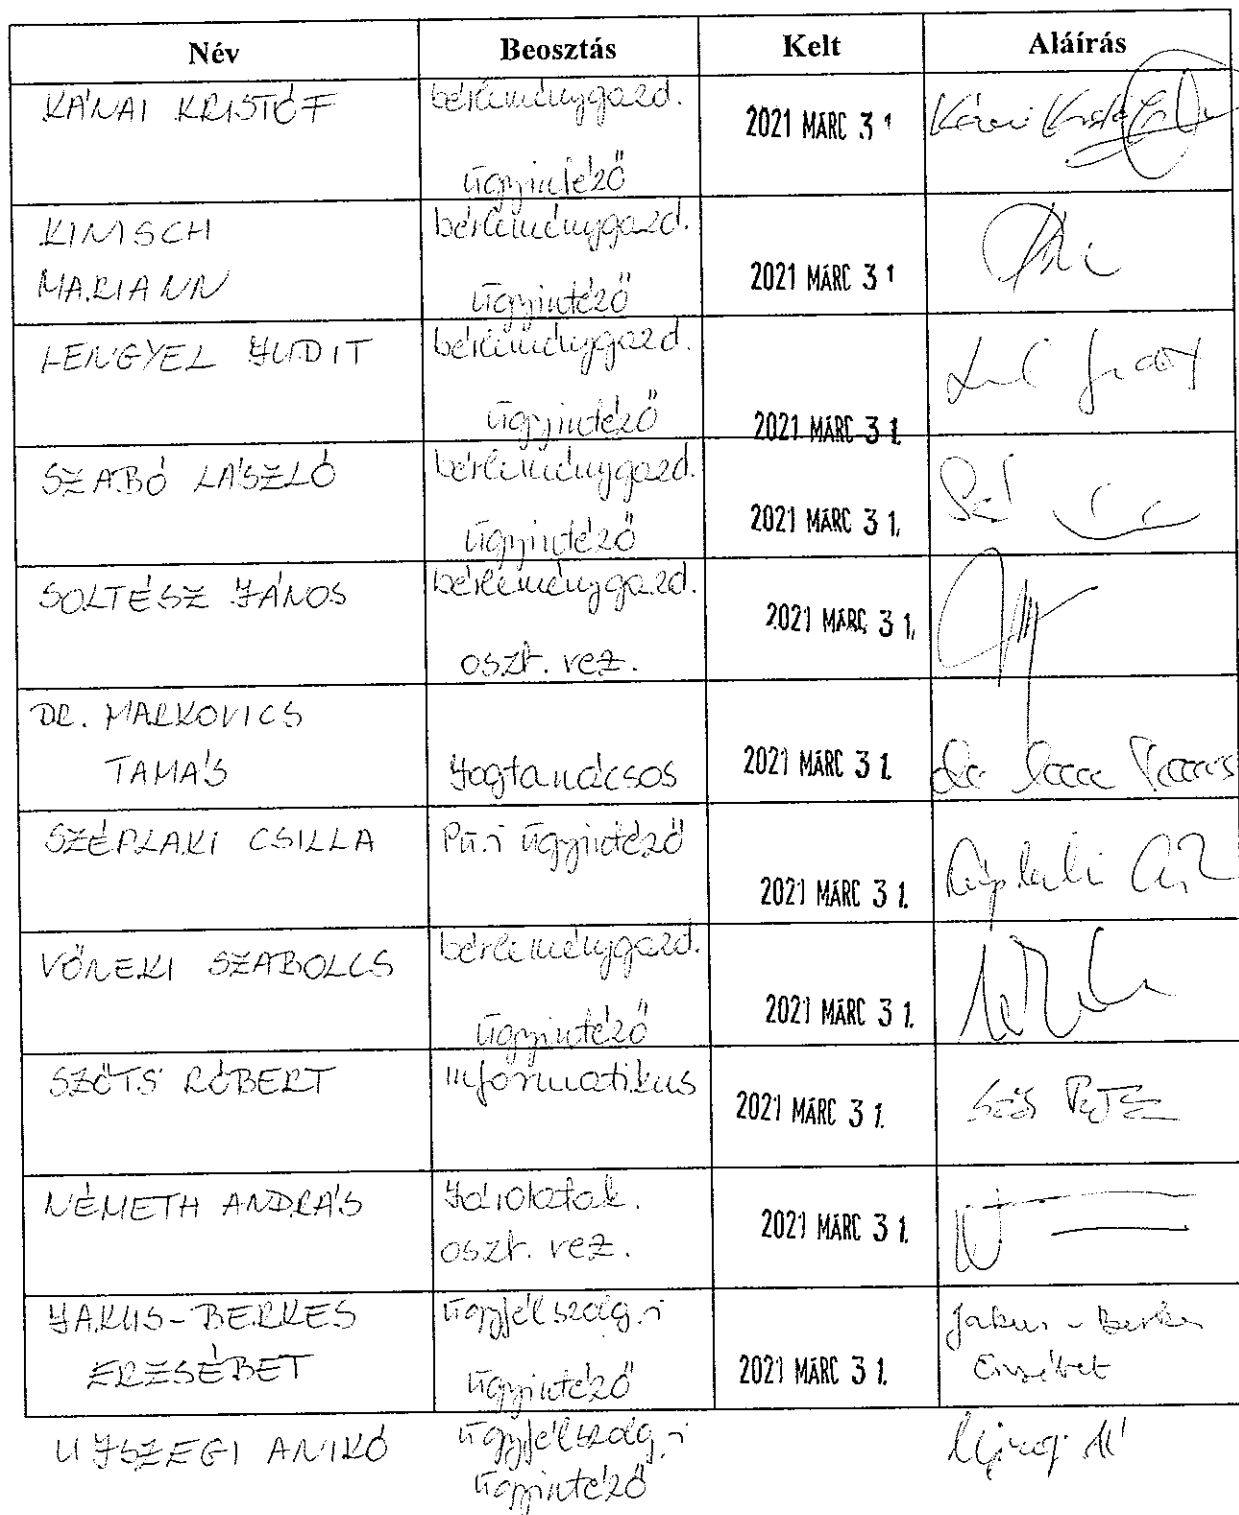 Név Beosztás Kelt Aláírás
KÁNAI KRISTÓF bérleménygazd. ügyintéző 2021 MÁRC 31
KINISCH MARIANN bérleménygazd. ügyintéző 2021 MÁRC 31
LENGYEL JUDIT bérleménygazd. ügyintéző 2021 MÁRC 31.
SZABÓ LÁSZLÓ bérleménygazd. ügyintéző 2021 MÁRC 31.
SOLTÉSZ JÁNOS bérleménygazd. oszt. vez. 2021 MÁRC 31.
DR. MARKOVICS TAMÁS Jogtanácsos 2021 MÁRC 31.
SZÉPLAKI CSILLA Pü.i ügyintéző 2021 MÁRC 31.
VÖNEKI SZABOLCS bérleménygazd. ügyintéző 2021 MÁRC 31.
SZŐTS RÓBERT Informatikus 2021 MÁRC 31.
NÉMETH ANDRÁS Járolatak. oszt. vez. 2021 MÁRC 31.
JAKUS-BERKES ERZSÉBET ügyfélszolg.i ügyintéző 2021 MÁRC 31. Jakus - Berkes Erzsébet
UJSZEGI ANIKÓ ügyfélszolg.i ügyintéző